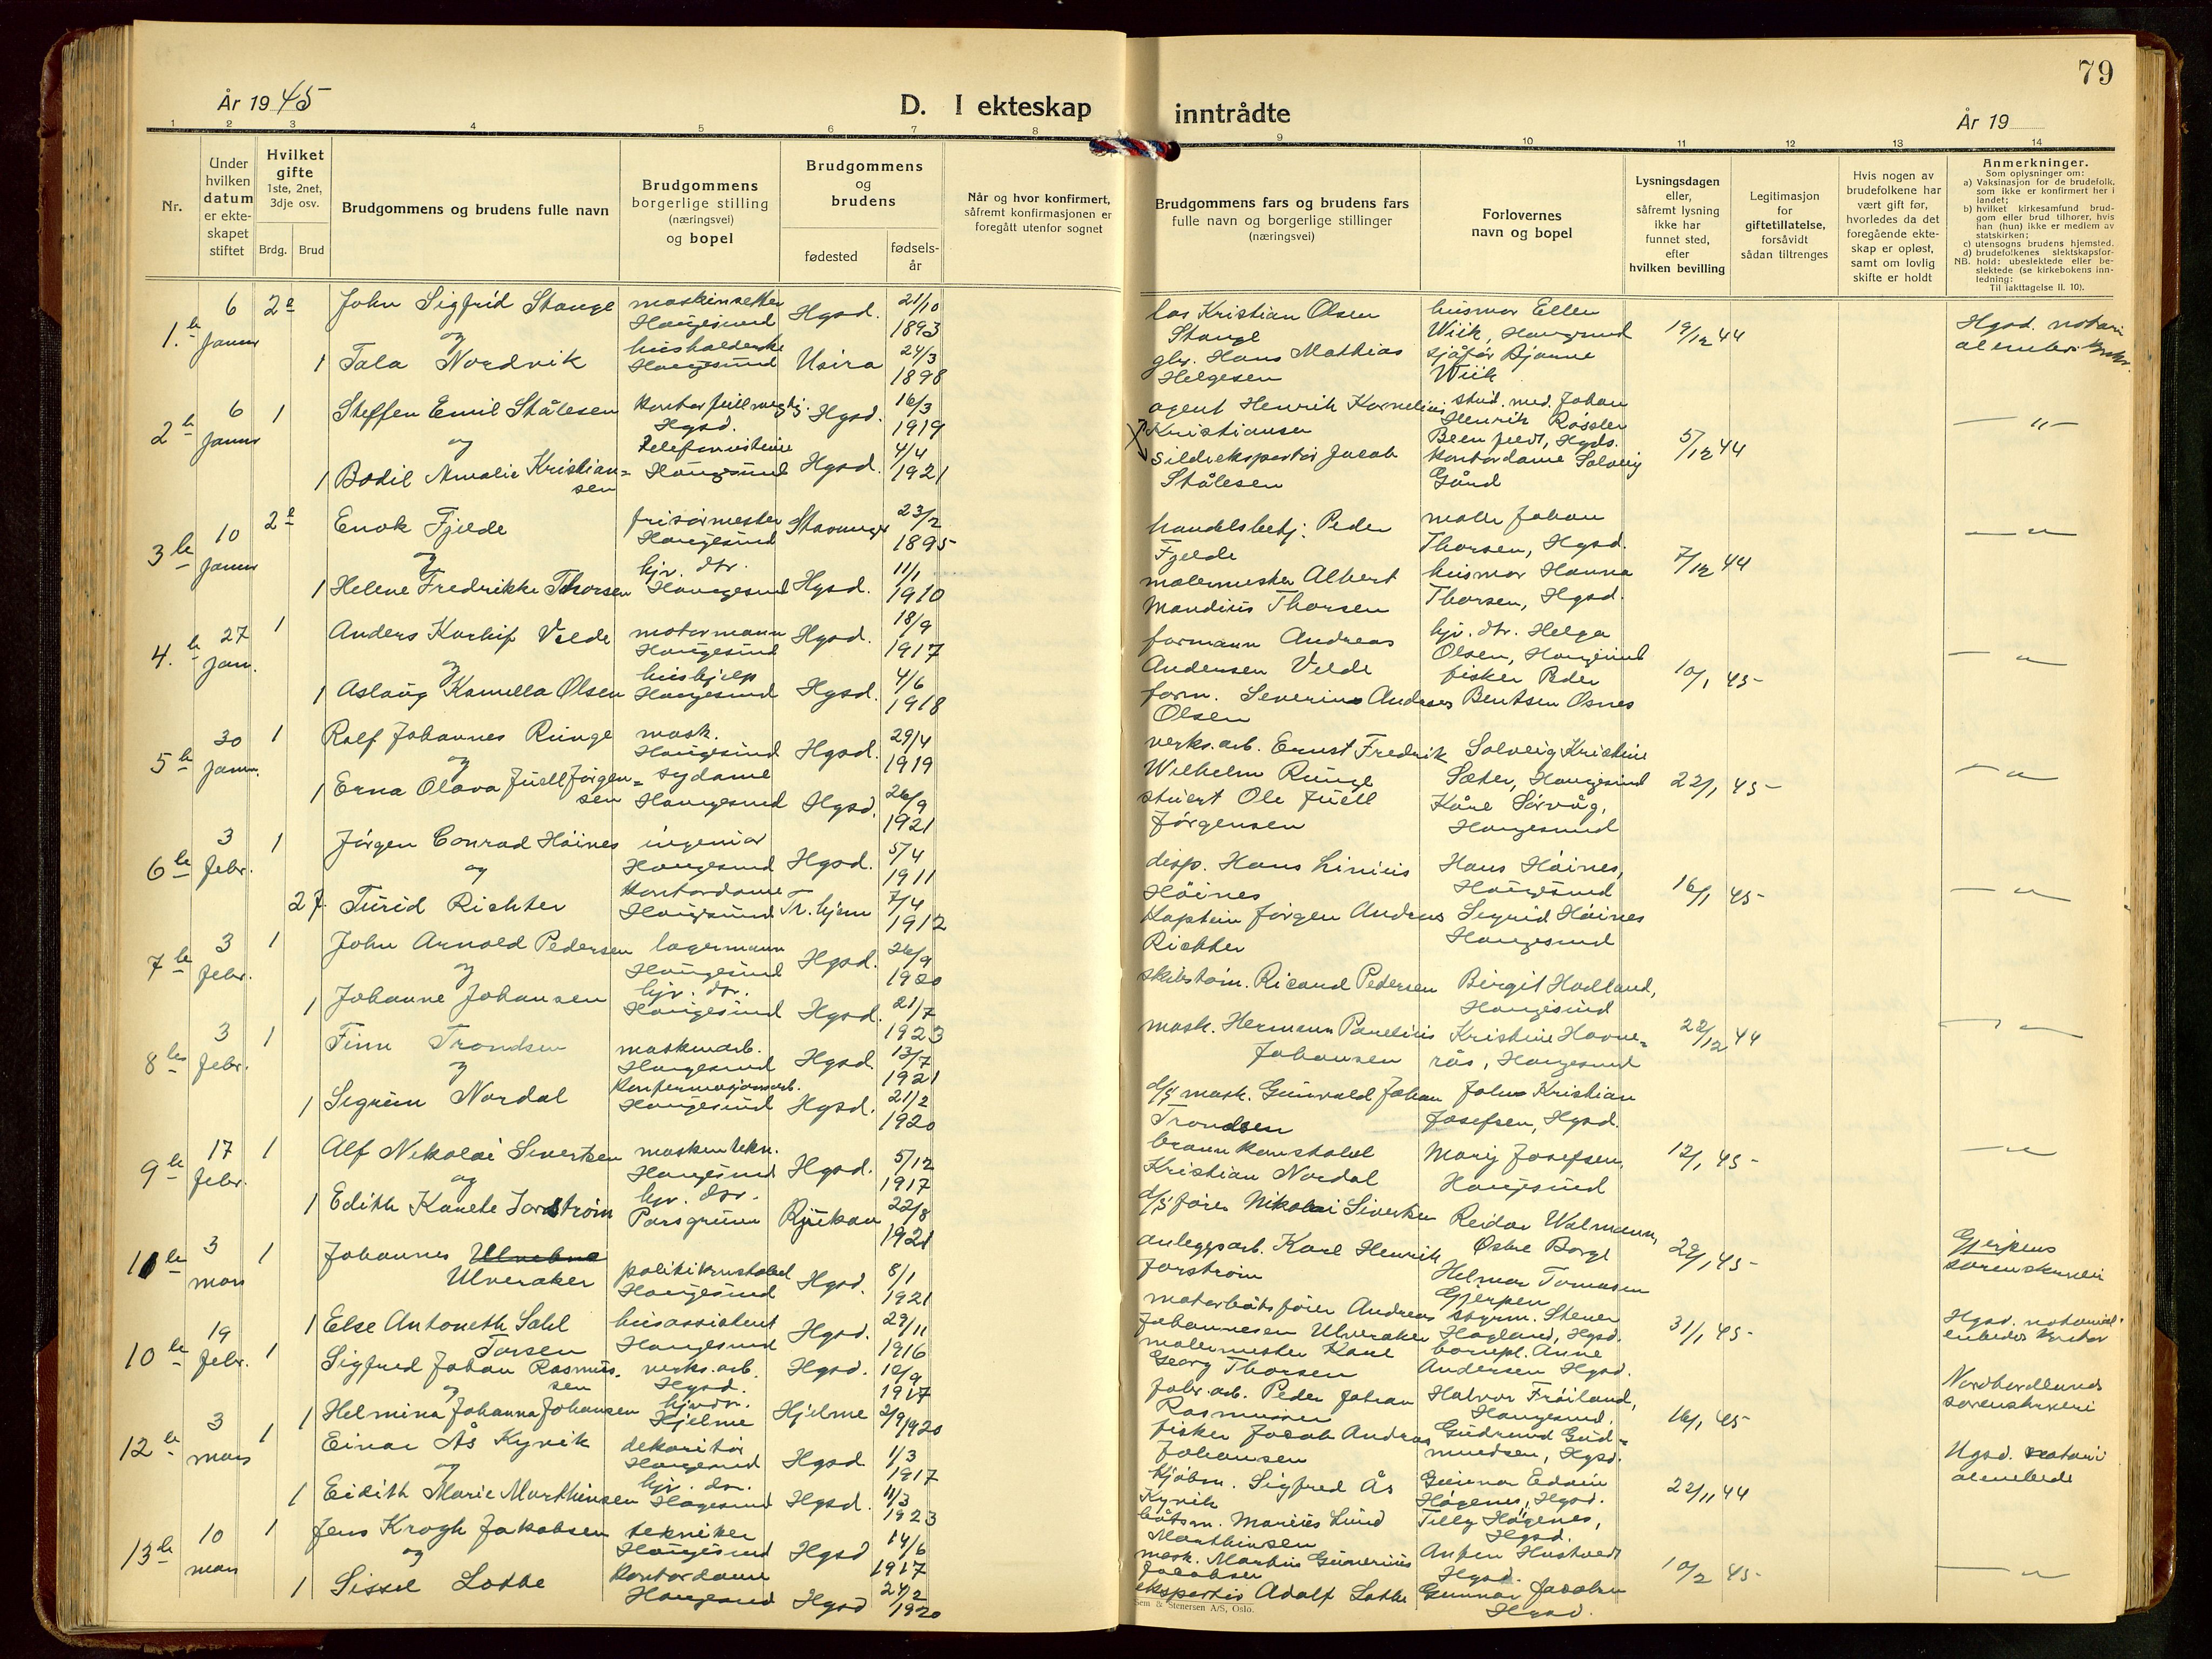 79
År 1945
D. I ekteskap inntrådte
År 19
1 2 3 4 5 6 7 8 9 10 11 12 13 14
Nr.
Under
hvilken
datum
er ekte-
skapet
stiftet
Hvilket
gifte
1ste, 2net,
3dje osv.
Brdg. Brud
Brudgommens og brudens fulle navn
Brudgommens
borgerlige stilling
(næringsvei)
og bopel
Brudgommens
og
brudens
fødested
fødsels-
år
Når og hvor konfirmert,
såfremt konfirmasjonen er
foregått utenfor sognet
Brudgommens fars og brudens fars
fulle navn og borgerlige stillinger
(næringsvei)
Forlovernes
navn og bopel
Lysningsdagen
eller,
såfremt lysning
ikke har
funnet sted,
efter
hvilken bevilling
Legitimasjon
for
giftetillatelse,
forsåvidt
sådan tiltrenges
Hvis nogen av
brudefolkene har
vært gift før,
hvorledes da det
foregående ekte-
skap er opløst,
samt om lovlig
skifte er holdt
Anmerkninger.
Som oplysninger om:
a) Vaksinasjon for de brudefolk,
som ikke er konfirmert her i
landet;
b) hvilket kirkesamfund brud-
gom eller brud tilhører, hvis
han (hun) ikke er medlem av
statskirken;
c) utensogns brudens hjemsted.
d) brudefolkenes slektskapsfor-
NB. hold: ubeslektede eller be-
slektede (se kirkebokens inn-
ledning:
Til iakttagelse II. 10).
1. 6 Janur 2 John Sigfrid Stange maskinsetter Haugesund Hgsd. 21/10 1893
og
1 Tala Nordvik husholderske Haugesund Utsira 24/3 1898
los Kristian Olsen Stange
gbr. Hans Mathias Helgesen
husmor Ellen Wiik, Haugesund
sjåfør Bjarne Wiik
19/12 44
Hgsd. notari
2 6 Janur 1 Steffen Emil Stålesen kontorfullmegtig. Hgsd. Hgsd. 16/3 1919
og
1 Bodil Amalie Kristian=sen telefonistinne Haugesund Hgsd. 4/4 1921
agent Henrik Kornelius Kristiansen
sildeksportør Jacob Stålesen
stud. med. Johan Henrik Rössler Beenfeldt, Hgsd.
kontordame Solveig Gånd
5/12 44
— " —
3 10 Janur 2 Enok Fjelde frisørmester Haugesund Stavanger 23/2 1895
og
1 Helene Fredrikke Thorsen hjv. dtr. Haugesund Hgsd. 11/1 1910
handelsbetj. Peder Fjelde
malermester Albert Mandius Thorsen
maler Johan Thorsen, Hgsd.
husmor Hanna Thorsen, Hgsd.
7/12 44
— " —
4. 27 Jan. 1 Anders Karhif Velde motormann Haugesund Hgsd. 18/9 1917
og
1 Aslaug Kamilla Olsen hushjelp Haugesund Hgsd. 4/6 1918
formann Andreas Andersen Velde
form. Severin Andreas Olsen
hjv. dtr. Helga Olsen, Haugesund
fisker Peder Bentsen Osnes
10/1 45
— " —
5 30 Janur. 1 Rolf Johannes Runge mask. Haugesund Hgsd. 29/4 1919
og
1 Erna Olava Juell Jørgen=sen sydame Haugesund Hgsd. 26/9 1921
verks.arb. Ernst Fredrik Wilhelm Runge
stuert Ole Juell Jørgensen
Solveig Kristine Sæter, Haugesund
Kåre Sørvåg, Haugesund
22/1 45
— " —
6 3 Febr. 1 Jørgen Conrad Høines ingeniør Haugesund Hgsd. 5/4 1911
og
2 f. Turid Richter kontordame Haugesund Tr. hjem 7/4 1912
disp. Hans Linius Høines
kaptein Jørgen Andreas Richter
Hans Høines, Haugesund
Sigrid Høines Haugesund
16/1 45
— " —
7 3 Febr. 1 John Arnold Pedersen lagermann Haugesund Hgsd. 26/9 1920
og
1 Johanne Johansen hjv. dtr. Haugesund Hgsd. 21/7 1923
skibstøm. Ricard Pedersen
mask. Hermann Parelius Johansen
Birgit Hodland, Haugesund
Kristine Havne=rås, Haugesund
22/12 44
— " —
8 3 Febr. 1 Finn Trondsen maskinarb. Haugesund Hgsd. 13/7 1921
og
1 Sigrun Nordal konfeksjonsarb. Haugesund Hgsd. 21/2 1920
d/s mask. Gunvald Johan Trondsen
brannkonstabel Kristian Nordal
John Kristian Josefsen, Hgsd.
Mary Josefsen, Haugesund
12/1 45
— " —
9 17 Febr. 1 Alf Nikolai Sivertsen maskintekn. Haugesund Hgsd. 5/12 1917
og
1 Edith Kanete Jordstrøm hjv. dtr. Porsgrunn Rjukan 22/8 1921
d/s fører Nikolai Sivertsen
anleggsarb. Karl Henrik Jorstrøm
Reidar Walmann, Østre Borge
Helmer Tomasen Gjerpen
29/1 45
Gjerpens sorenskriveri
11 3 mars 1 Johannes Ulveraker politikonstabel Haugesund Hgsd. 8/1 1921
1 Else Antoneth Sahl Torsen husassistent Haugesund Hgsd. 29/11 1916
motorbåtsfører Andreas Johannesen Ulveraker
malermester Karl Georg Thorsen
styrm. Stener Hagland, Hgsd.
barnepl. Anne Andersen Hgsd.
31/1 45
Hgsd. notarial
10 19 Febr. 1 Sigfred Johan Rasmus.sen verks.arb. Hgsd. Hgsd. 12/9 1917
og
1 Helmina Johanna Johansen hjvdtr. Hjelme Hjelme 2/9 1920
fabr.arb. Peder Johan Rasmussen
fisker Jacob Andreas Johansen
Halvor Frøiland, Haugesund.
Gudrund Gud=mundsen, Hgsd.
16/1 45
Nordhordlands sorenskriveri
12 3 mars 1 Einar Ås Kyvik dekoritør Haugesund Hgsd 1/3 1917
og
1 Eidith Marie Marthinsen hjv. dtr. Haugesund Hgsd. 11/3 1923
kjøbm. Sigfred Ås Kyvik
båtsm. Marius Lund Marthinsen
Gunnar Edvin Høgenes, Hgsd.
Tilly Høgenes, Hgsd.
22/11 44
Hgsd. notari
13 10 mars 1 Jens Krogh Jakobsen tekniker Haugesund Hgsd 14/6 1917
og
1 Sissel Lothe kontordame Haugesund Hgsd 24/2 1920
mask. Martin Gunerius Jacobsen
eksportør Adolf Lothe
Anfin Hustvedt Hgsd.
Gunnar Jacobsen Hgsd.
10/2 45
— " —
Sem & Stenersen A/S, Oslo.